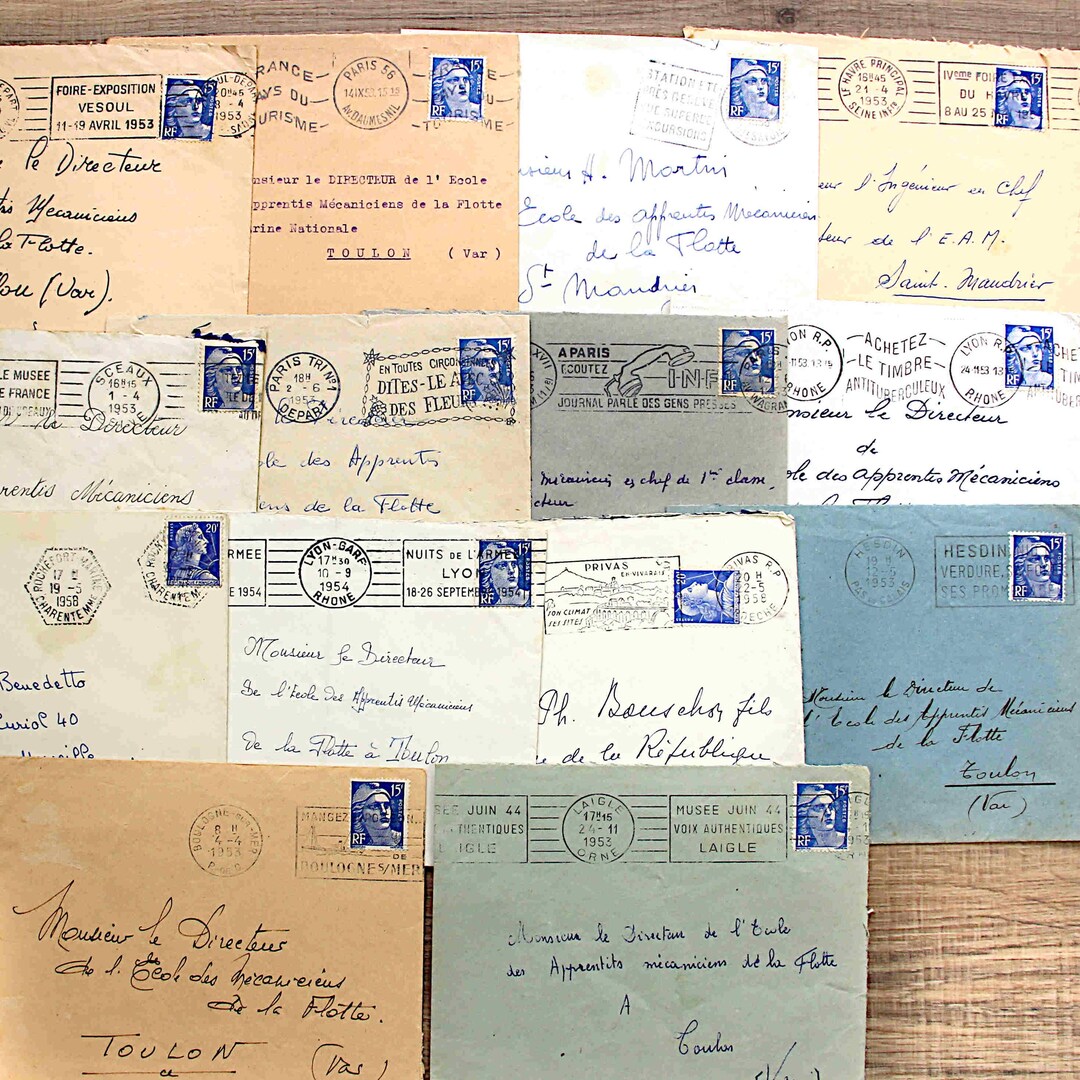 FOIRE-EXPOSITION
VESOUL
11-19 AVRIL 1953
15F
RF
8-4
1953
le Directeur
Mecaniciens
la Flotte.
(Var).
FRANCE
PAYS DU
TOURISME
PARIS 56
Av. DAUMESNIL
15F
RF
nsieur le DIRECTEUR de l' Ecole
pprentis Mécaniciens de la Flotte
rine Nationale
TOULON (Var)
STATION ETE
PRES GENEVE
DE SUPERBES
EXCURSIONS
15F
RF
H. Martin
Ecole des apprentis Mecaniciens
de la Flotte
St Mandrier
LE HAVRE PRINCIPAL
16H45
21-4
1953
SEINE INFRE
IVeme FOIRE
DU HAVRE
8 AU 25
15F
RF
eur l'Ingénieur en Chef
teur de l'E.A.M.
Saint-Mandrier
LE MUSEE
E FRANCE
SCEAUX
16H15
1-4
1953
15F
RF
le Directeur
rentis Mécaniciens
PARIS TRI No1
18H
2-6
1953
DEPART
EN TOUTES CIRCONSTANCES
DITES-LE AVEC
DES FLEURS
15F
RF
ole des Apprentis
ens de la Flotte
PARIS XVII
A PARIS
ECOUTEZ
INF
JOURNAL PARLÉ DES GENS PRESSÉS
WAGRAM
15F
RF
Mécanicien en chef de 1ère classe,
cteur
LYON R.P.
RHONE
ACHETEZ
LE TIMBRE
ANTITUBERCULEUX
LYON R.P.
24-11 53
RHONE
15F
RF
nsieur le Directeur
de
ole des Apprentis Mécaniciens
ROCHEFORT
17 H
19-5
1958
CHARENTE-MME
20F
Benedetto
Curiol 40
ARMEE
E 1954
LYON-GARE
17H30
10-9
1954
RHONE
NUITS DE L'ARMEE
LYON
18-26 SEPTEMBRE 1954
15F
RF
Monsieur le Directeur
De l'Ecole des Apprentis Mécaniciens
De la Flotte à Toulon
PRIVAS
EN VIVARAIS
SON CLIMAT
SES SITES
20F
PRIVAS R.P.
20 H
12-5
1958
ARDECHE
Ph. Bouschon fils
de la République
HESDIN
1953
PAS DE CALAIS
HESDIN
VERDURE,
SES PROM
15F
RF
Monsieur le Directeur de
l'Ecole des Apprentis Mécaniciens
de la Flotte
Toulon
(Var)
BOULOGNE-SUR-MER
8 H
4-4
1953
MANGEZ
DE
BOULOGNE S/MER
15F
RF
Monsieur le Directeur
de l'Ecole des Mécaniciens
de la Flotte.
TOULON
(Var)
SEE JUIN 44
THENTIQUES
LAIGLE
LAIGLE
17H15
24-11
1953
ORNE
MUSEE JUIN 44
VOIX AUTHENTIQUES
LAIGLE
15F
RF
Monsieur le Directeur de l'Ecole
des Apprentits mécaniciens de la Flotte
A
Toulon